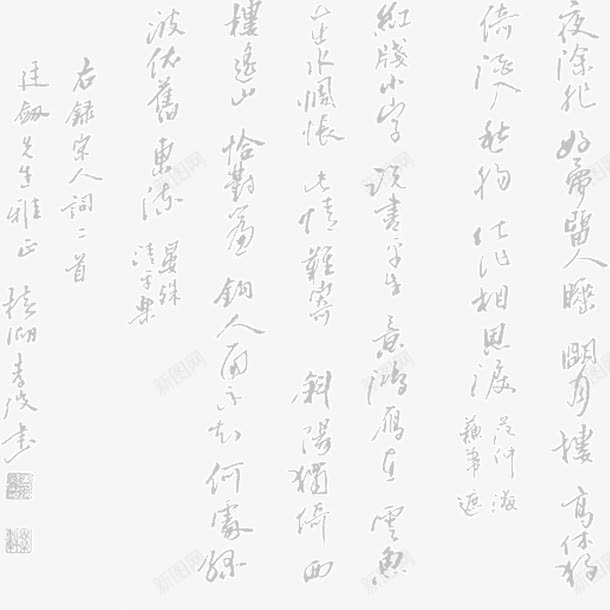 夜除非好夢留人睡明月樓高休獨
倚酒入愁腸化作相思淚
范仲淹
蘇幕遮
紅牋小字說盡平生意鴻雁在雲魚
在水惆悵此情難寄斜陽獨倚西
樓遙山恰對簾鉤人面不知何處綠
波依舊東流
晏殊
清平樂
右錄宋人詞二首
先生雅正
湖李俊書
新图网